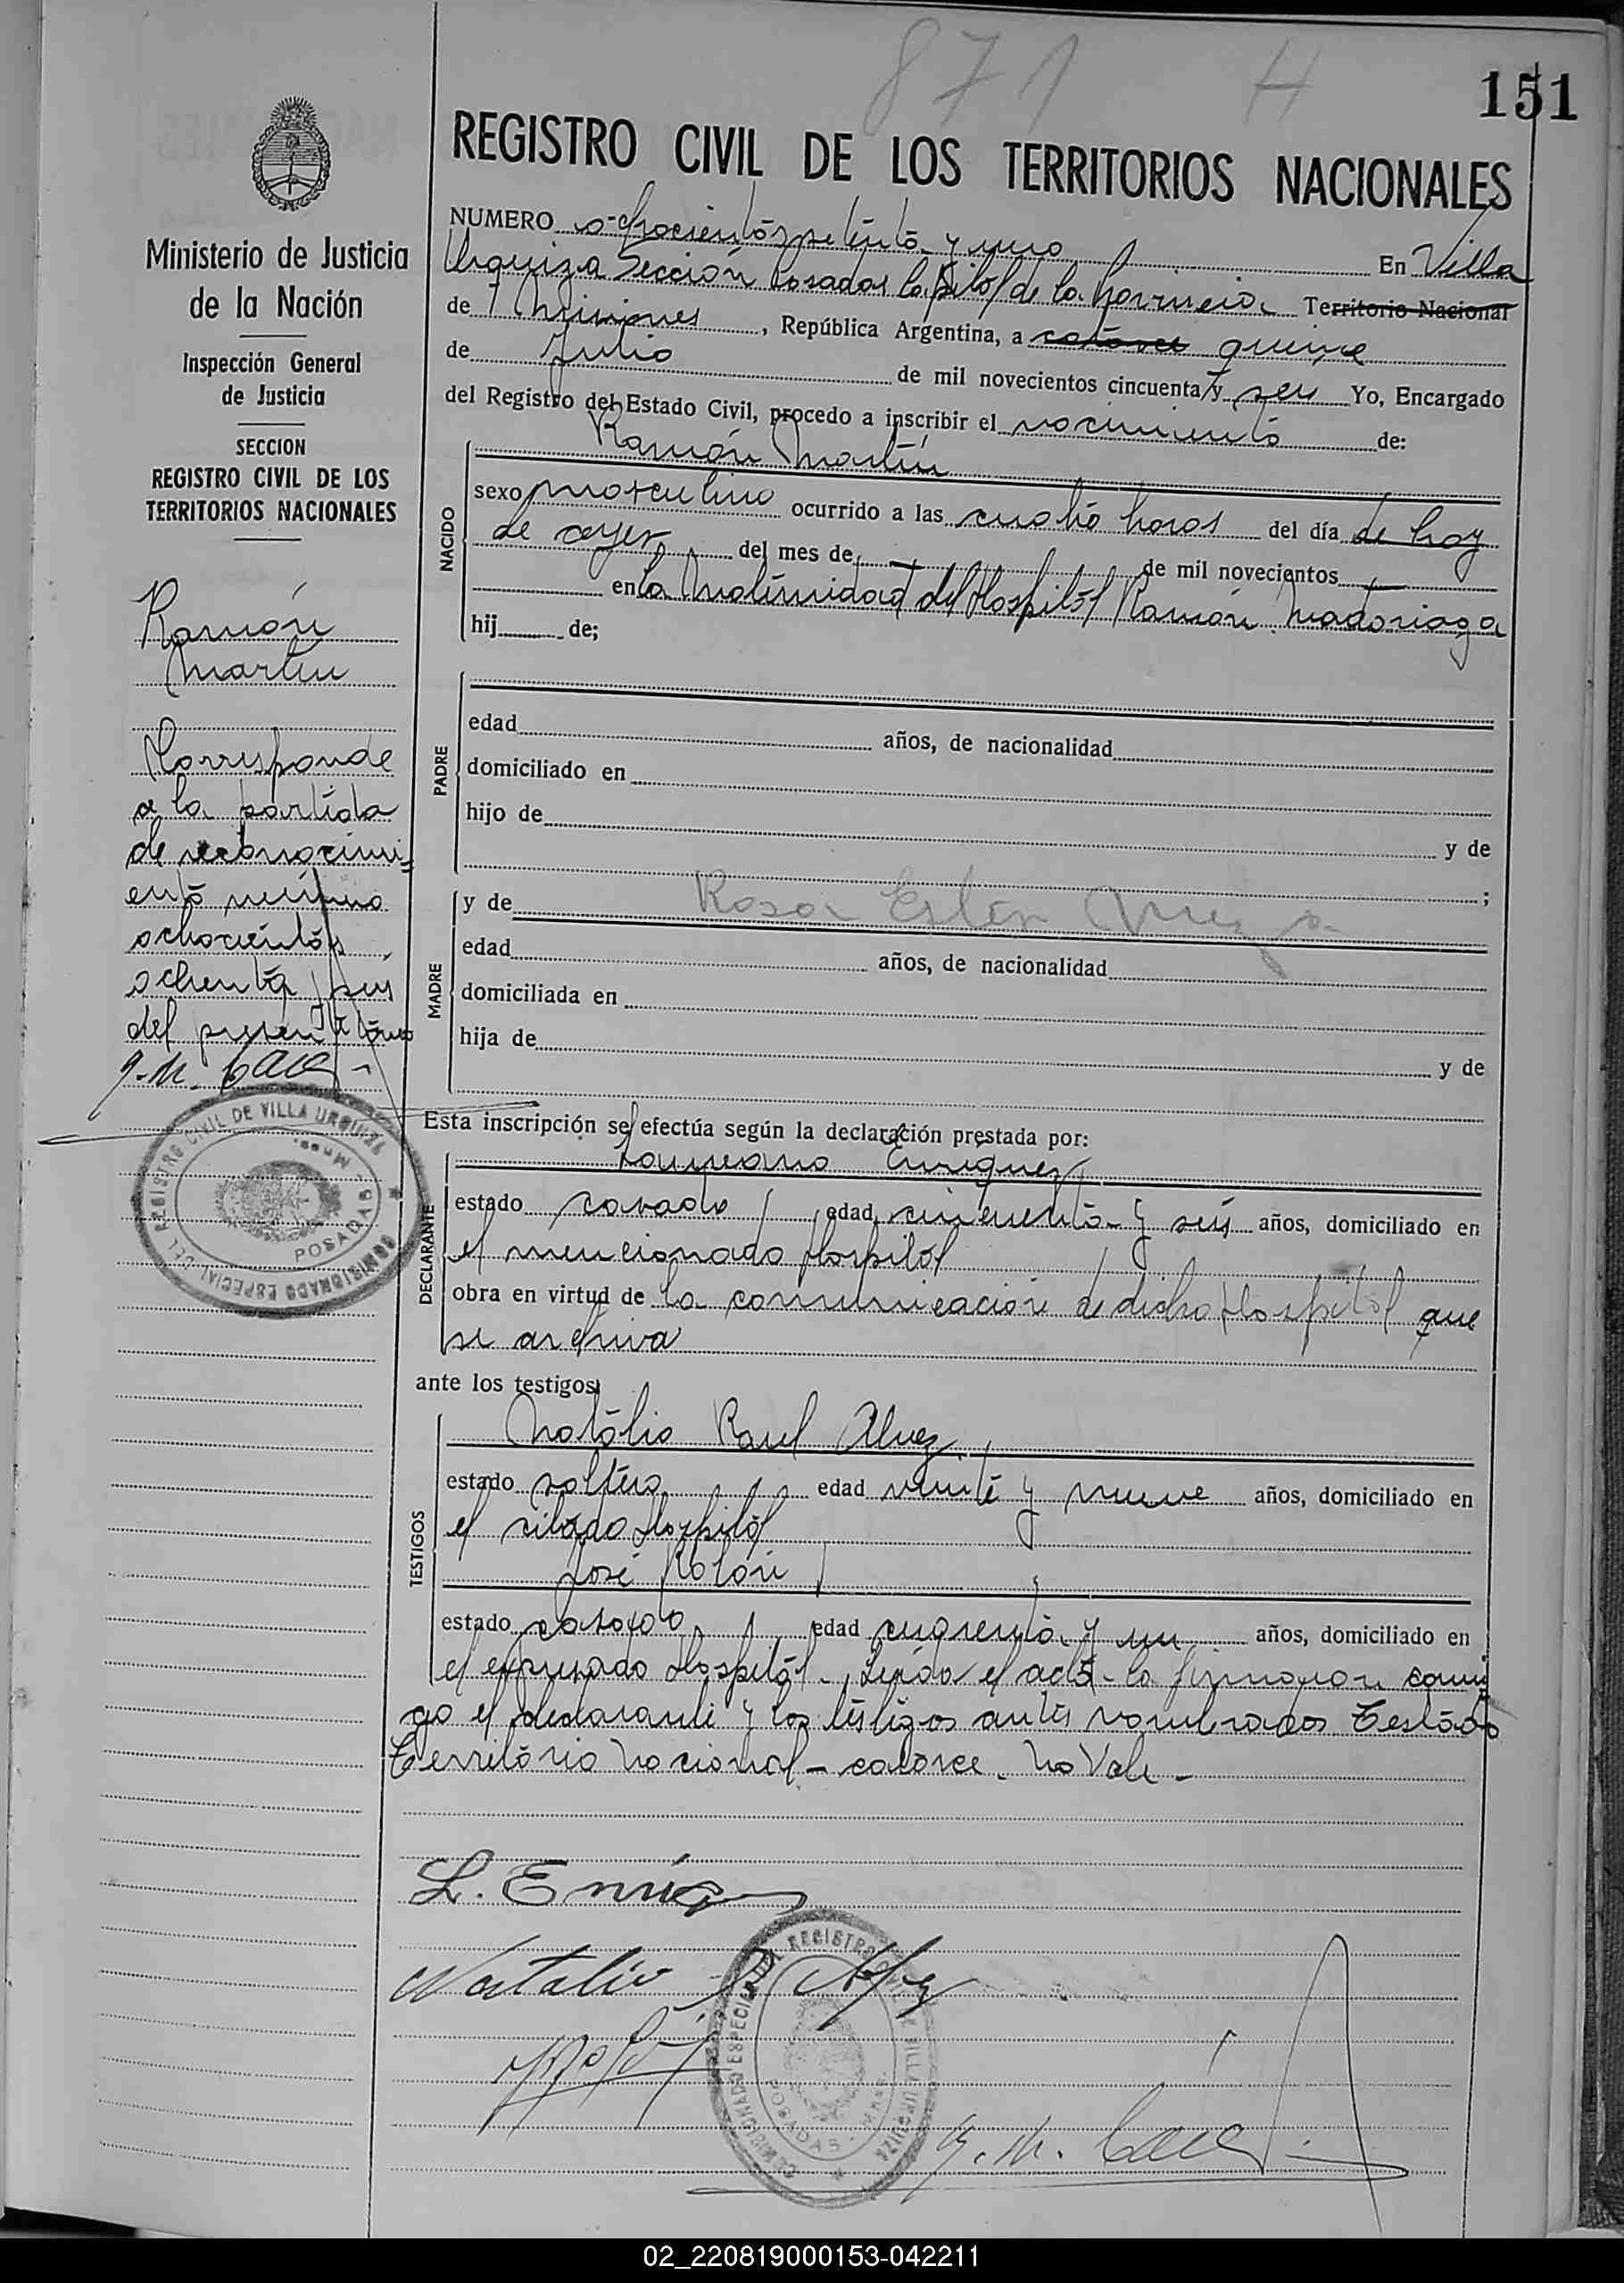 871 H
151
REGISTRO CIVIL DE LOS TERRITORIOS NACIONALES
Ministerio de Justicia
de la Nación
Inspección General
de Justicia
SECCION
REGISTRO CIVIL DE LOS
TERRITORIOS NACIONALES
Ramón
Martín
Corresponde
a la partida
de reconocimi-
ento número
ochocientos
ochenta y seis
del presente tomo
COMISIONADO ESPECIAL DEL REGISTRO CIVIL DE VILLA URQUIZA
POSADAS - Mnes.
NUMERO ochocientos setenta y uno En Villa
Urquiza Sección Posadas Capital de la Provincia Territorio Nacional
de Misiones, República Argentina, a catorce quince
de Julio de mil novecientos cincuenta y seis Yo, Encargado
del Registro del Estado Civil, procedo a inscribir el nacimiento de:
NACIDO
Ramón Martín
sexo masculino ocurrido a las cuatro horas del día de hoy
de ayer del mes de — de mil novecientos —
en la Maternidad del Hospital Ramón Madariaga
hij de;
PADRE
edad años, de nacionalidad
domiciliado en
hijo de y de
;
MADRE
y de Rosa Ester
edad años, de nacionalidad
domiciliada en
hija de y de
Esta inscripción se efectúa según la declaración prestada por:
DECLARANTE
Enriquez
estado casado edad cincuenta y seis años, domiciliado en
el mencionado Hospital
obra en virtud de la comunicación de dicho Hospital que
se archiva
ante los testigos
TESTIGOS
Natalio Raul Alvez
estado soltero edad veinte y nueve años, domiciliado en
el citado Hospital
José Rolón
estado casado edad cuarenta y un años, domiciliado en
el expresado Hospital - Leída el acta - la firmaron conmi
go el declarante y los testigos antes nombrados Testado
Territorio Nacional - catorce. No Vale -
L. Enriquez
Natalio R. Alvez
COMISIONADO ESPECIAL DEL REGISTRO CIVIL DE VILLA URQUIZA
POSADAS - Mnes.
02_220819000153-042211